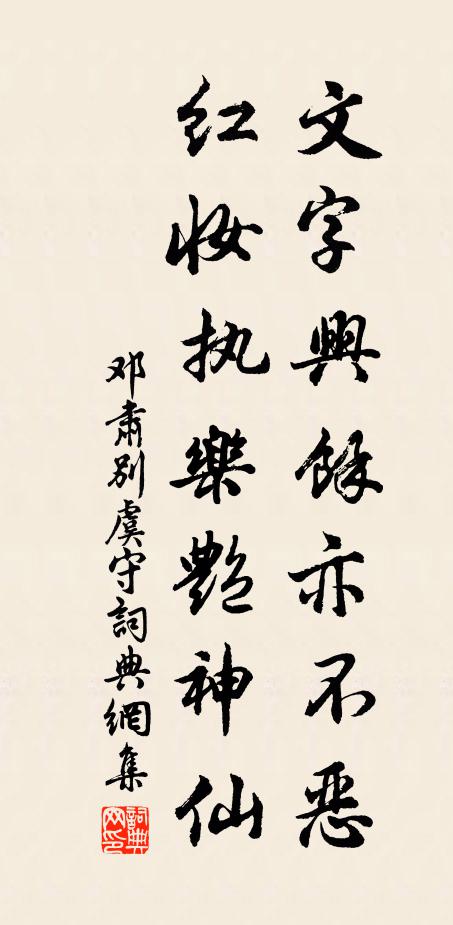 文字興餘亦不惡
红妆执樂艷神仙
邓肅别虞守詞典網集
詞典网印